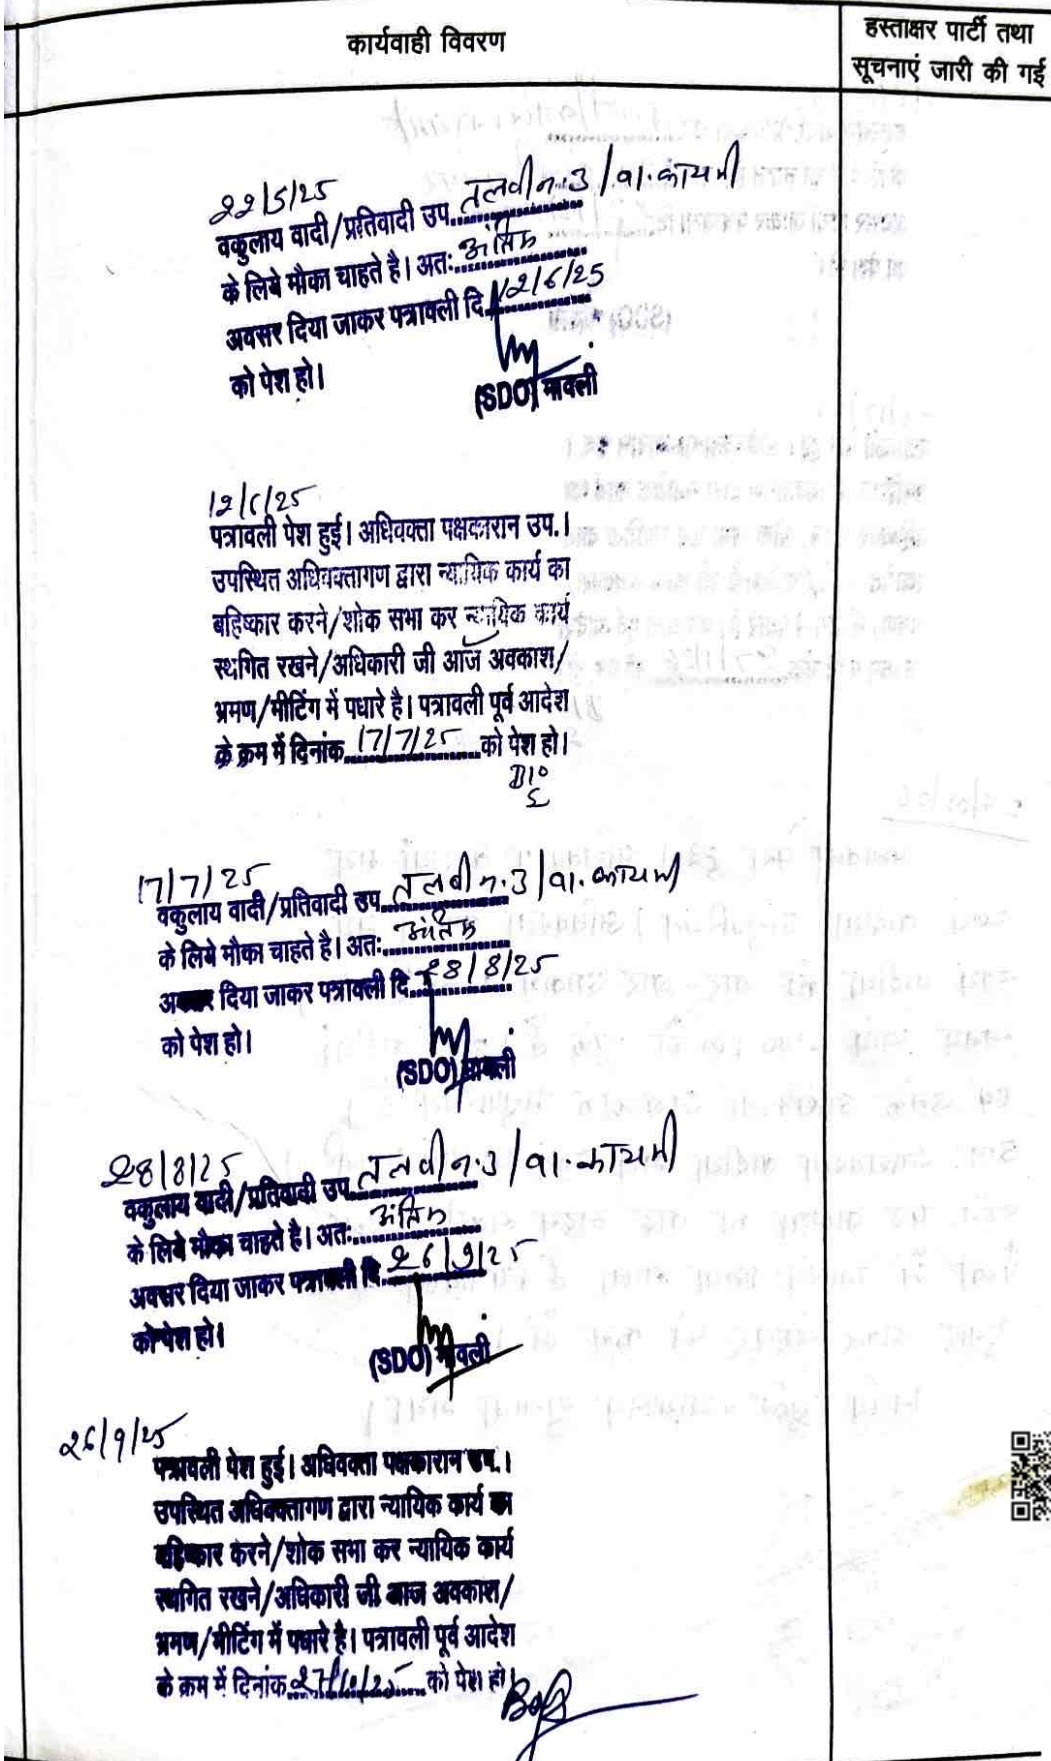 कार्यवाही विवरण
हस्ताक्षर पार्टी तथा
सूचनाएं जारी की गई
22/5/25
वकुलाय वादी/प्रतिवादी उप. तलवी न. 3/वा. कायमी
के लिये मौका चाहते है। अतः अंतिम
अवसर दिया जाकर पत्रावली दि. 12/6/25
को पेश हो।
(SDO) मावली
12/6/25
पत्रावली पेश हुई। अधिवक्ता पक्षकारान उप.।
उपस्थित अधिवक्तागण द्वारा न्यायिक कार्य का
बहिष्कार करने/शोक सभा कर न्यायिक कार्य
स्थगित रखने/अधिकारी जी आज अवकाश/
भ्रमण/मीटिंग में पधारे है। पत्रावली पूर्व आदेश
के क्रम में दिनांक 17/7/25 को पेश हो।
17/7/25
वकुलाय वादी/प्रतिवादी उप. तलवी न. 3/वा. कायमी
के लिये मौका चाहते है। अतः अंतिम
अवसर दिया जाकर पत्रावली दि. 28/8/25
को पेश हो।
(SDO) मावली
28/8/25
वकुलाय वादी/प्रतिवादी उप. तलवी न. 3/वा. कायमी
के लिये मौका चाहते है। अतः अंतिम
अवसर दिया जाकर पत्रावली दि. 26/9/25
को पेश हो।
(SDO) मावली
26/9/25
पत्रावली पेश हुई। अधिवक्ता पक्षकारान उप.।
उपस्थित अधिवक्तागण द्वारा न्यायिक कार्य का
बहिष्कार करने/शोक सभा कर न्यायिक कार्य
स्थगित रखने/अधिकारी जी आज अवकाश/
भ्रमण/मीटिंग में पधारे है। पत्रावली पूर्व आदेश
के क्रम में दिनांक 27/10/25 को पेश हो।